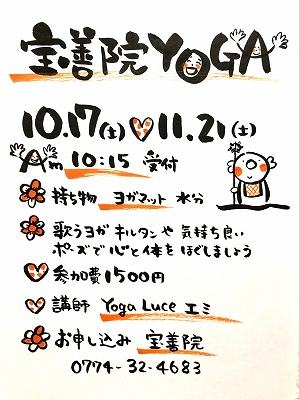 宝善院YOGA
10.17(土)11.21(土)
Am 10:15 受付
持ち物 ヨガマット 水分
歌うヨガ キルタンや 気持ち良い
ポーズで心と体をほぐしましょう
参加費1500円
講師 Yoga Luce エミ
お申し込み 宝善院
0774-32-4683